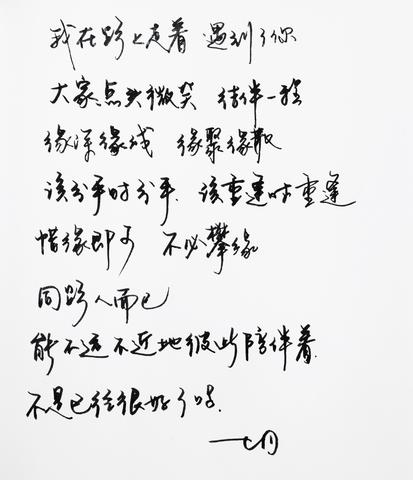 我在路上走着 遇到了你
大家点头微笑 结伴一程
缘深缘浅 缘聚缘散
该分手时分手.该重逢时重逢
惜缘即可 不必攀缘
同路人而已
能不远不近地彼此陪伴着.
不是已经很好了吗.
七月